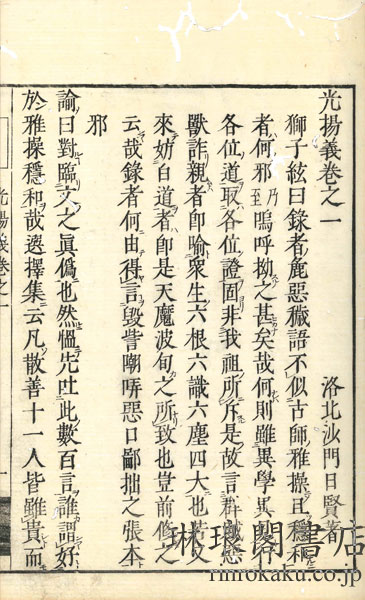 光揚義卷之一
洛北沙門日賢著
獅子絃曰錄者麁惡穢語不似古師雅操且穩和
者何邪乃至嗚呼拗之甚矣哉何則雖異學異
各位道取各位證固非我祖所斥是故言群賊惡
獸詐親者卽喻衆生六根六識六塵四大也若又
來妨白道者卽是天魔波旬之所致也豈前修之
云哉錄者何由得言毀訾嘲哢惡口鄙拙之張本
邪
諭曰對臨文之眞僞也然慍先吐此數百言誰謂好
於雅操穩和哉選擇集云凡散善十一人皆雖貴而
光揚義卷之一
琳琅閣書店
rinrokaku.co.jp